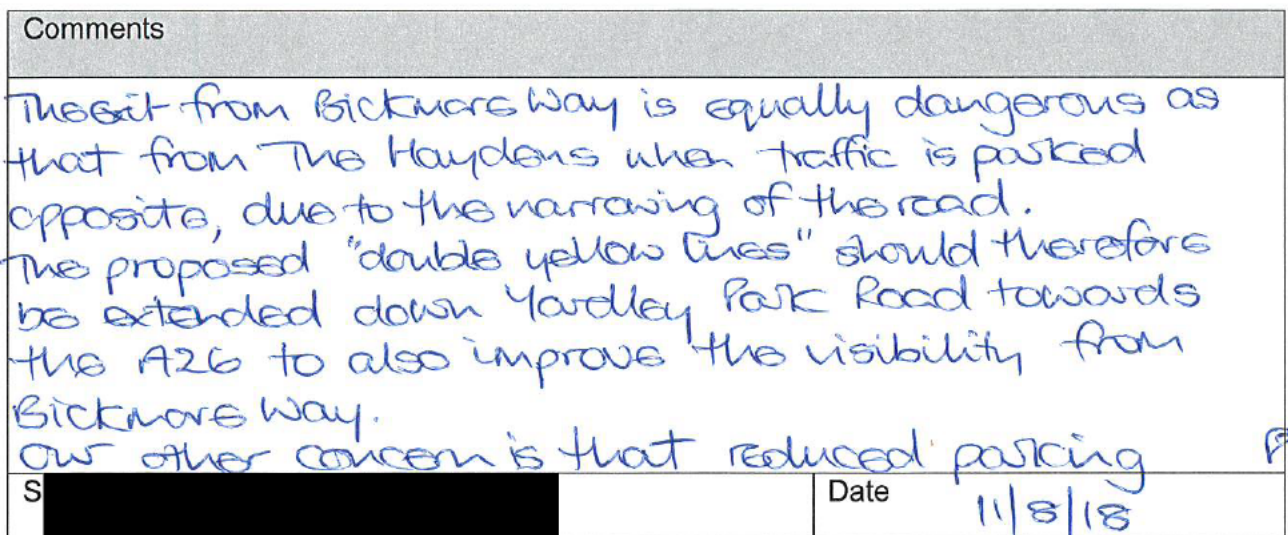 Comments
The exit from Bickmore Way is equally dangerous as
that from The Haydens when traffic is parked
opposite, due to the narrowing of the road.
The proposed "double yellow lines" should therefore
be extended down Yardley Park Road towards
the A26 to also improve the visibility from
Bickmore Way.
Our other concern is that reduced parking
S
Date 11/8/18